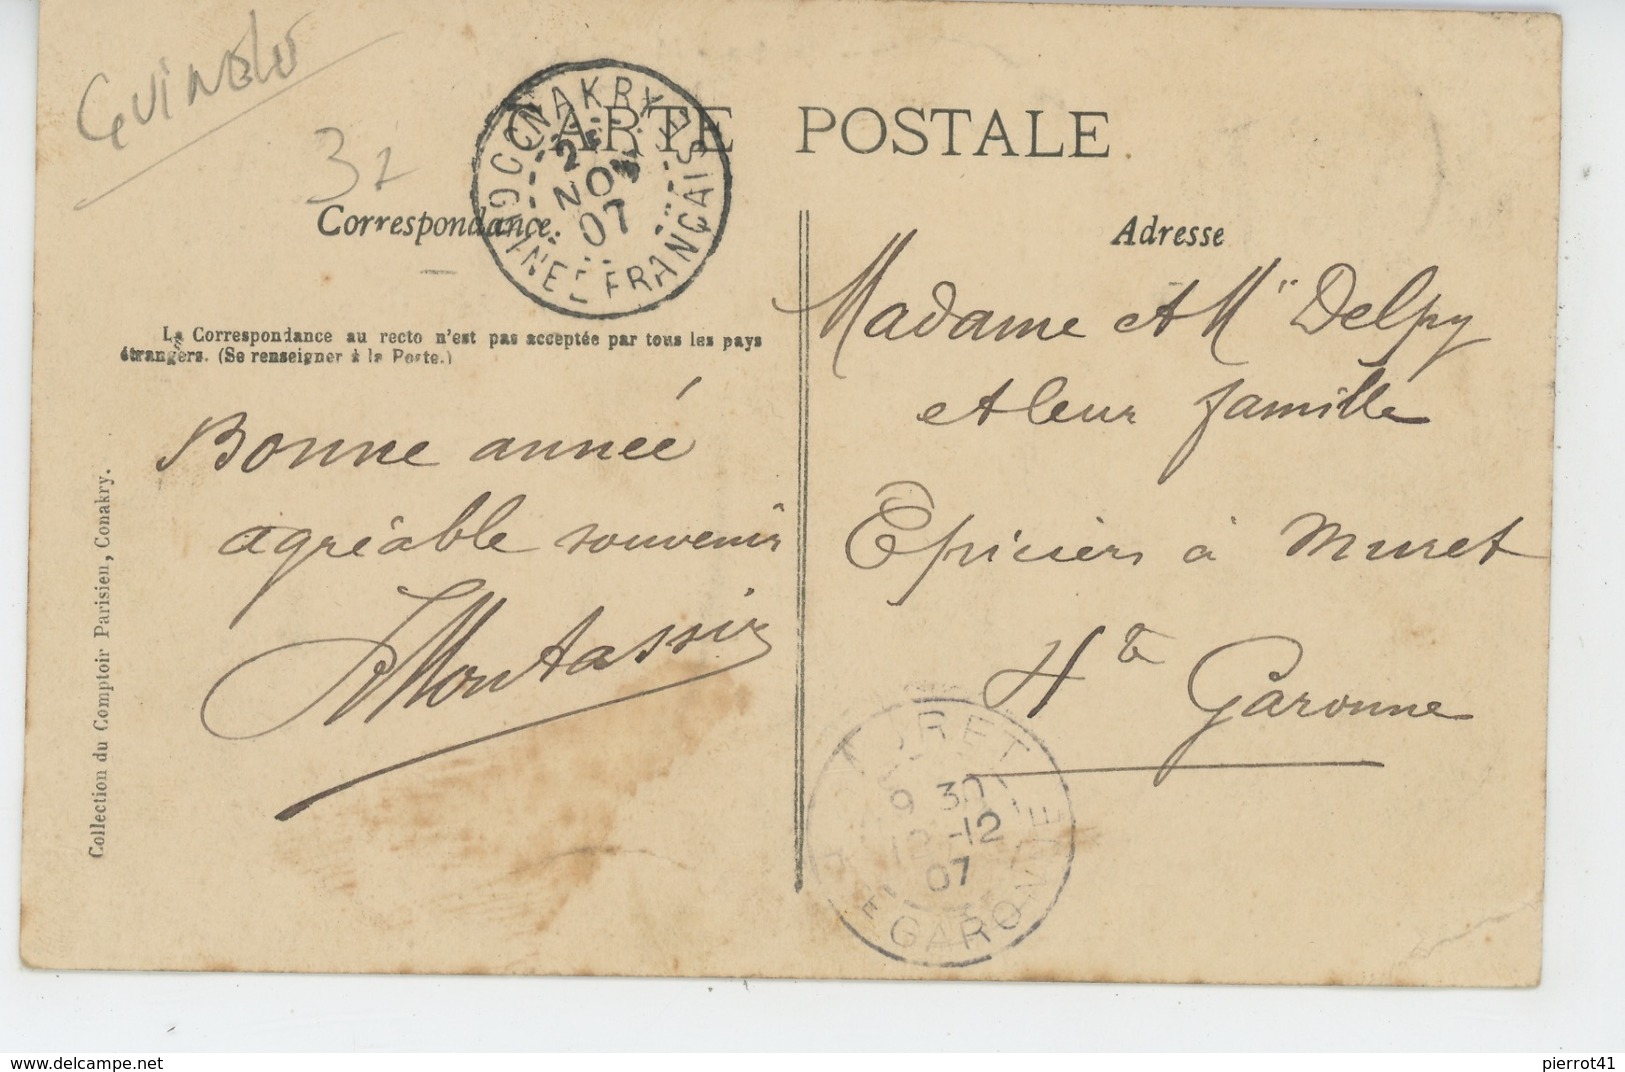 32
CARTE POSTALE
CONAKRY
NOV
07
GUINEE FRANÇAISE
Correspondance.
La Correspondance au recto n'est pas acceptée par tous les pays
étrangers. (Se renseigner à la Poste.)
Bonne année
agréable souvenir
Collection du Comptoir Parisien, Conakry.
Adresse
Madame et Mr Delpy
et leur famille
Epiciers à Muret
Hte Garonne
MURET
9 30
12 -12
07
GARONNE
www.delcampe.net
pierrot41